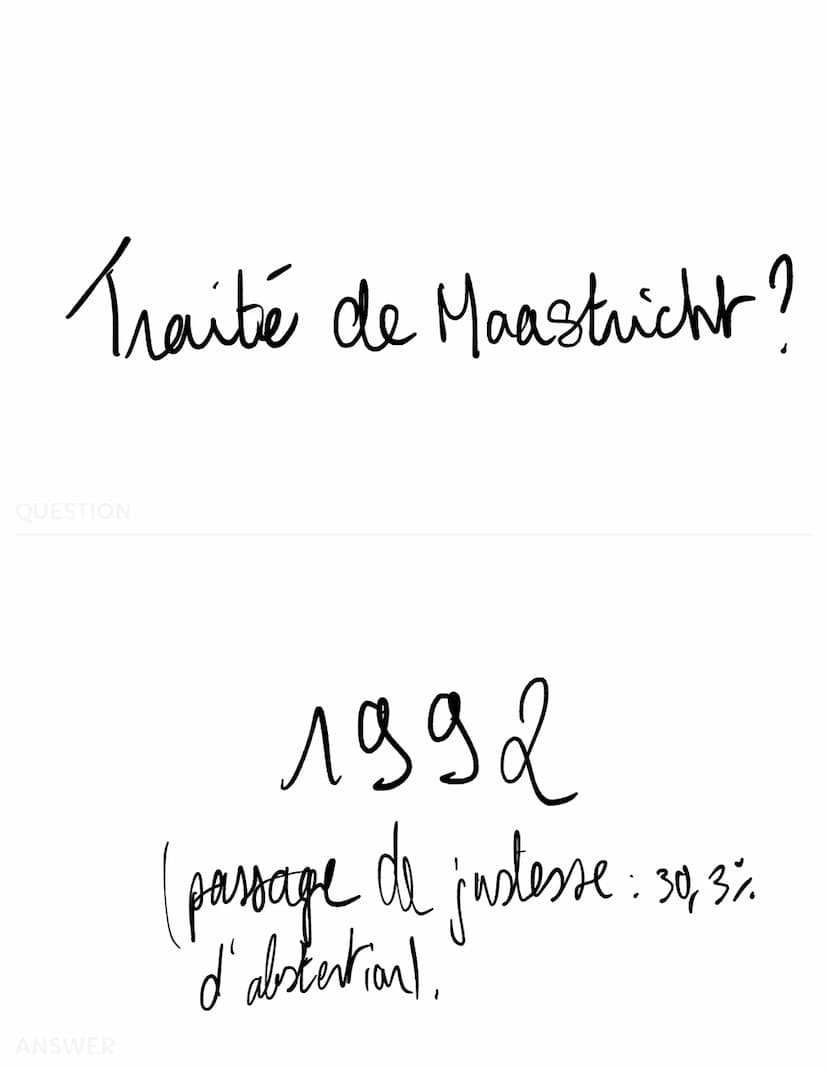 Traité de Maastricht ?
QUESTION
1992
(passage de justesse : 30,3%
d'abstention).
ANSWER